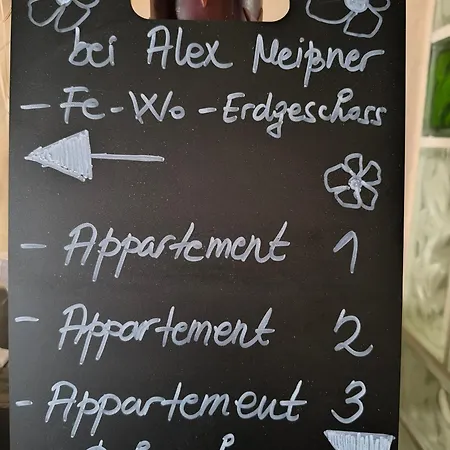 bei Alex Meißner
- Fe-Wo-Erdgeschoss
- Appartement 1
- Appartement 2
- Appartement 3